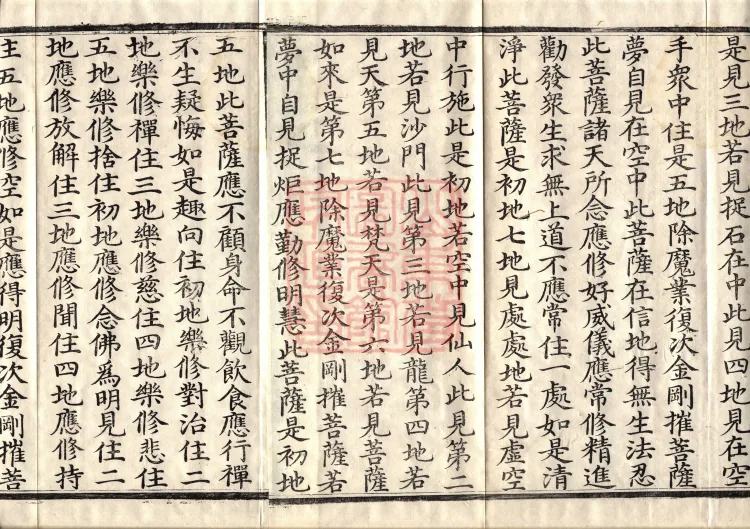 是見三地若見捉石在中此見四地見在空
手衆中住是五地除魔業復次金剛摧菩薩
夢自見在空中此菩薩在信地得無生法忍
此菩薩諸天所念應修好威儀應常修精進
勸發衆生求無上道不應常住一處如是清
淨此菩薩是初地七地見處處地若見虛空
中行施此是初地若空中見仙人此見第二
地若見沙門此見第三地若見龍第四地若
見天第五地若見梵天是第六地若見菩薩
如來是第七地除魔業復次金剛摧菩薩若
夢中自見捉炬應勤修明慧此菩薩是初地
五地此菩薩應不顧身命不觀飲食應行禪
不生疑悔如是趣向住初地樂修對治住二
地樂修禪住三地樂修慈住四地樂修悲住
五地樂修捨住初地應修念佛爲明見住二
地應修放解住三地應修聞住四地應修持
五地應修空如是應得明復次金剛摧菩